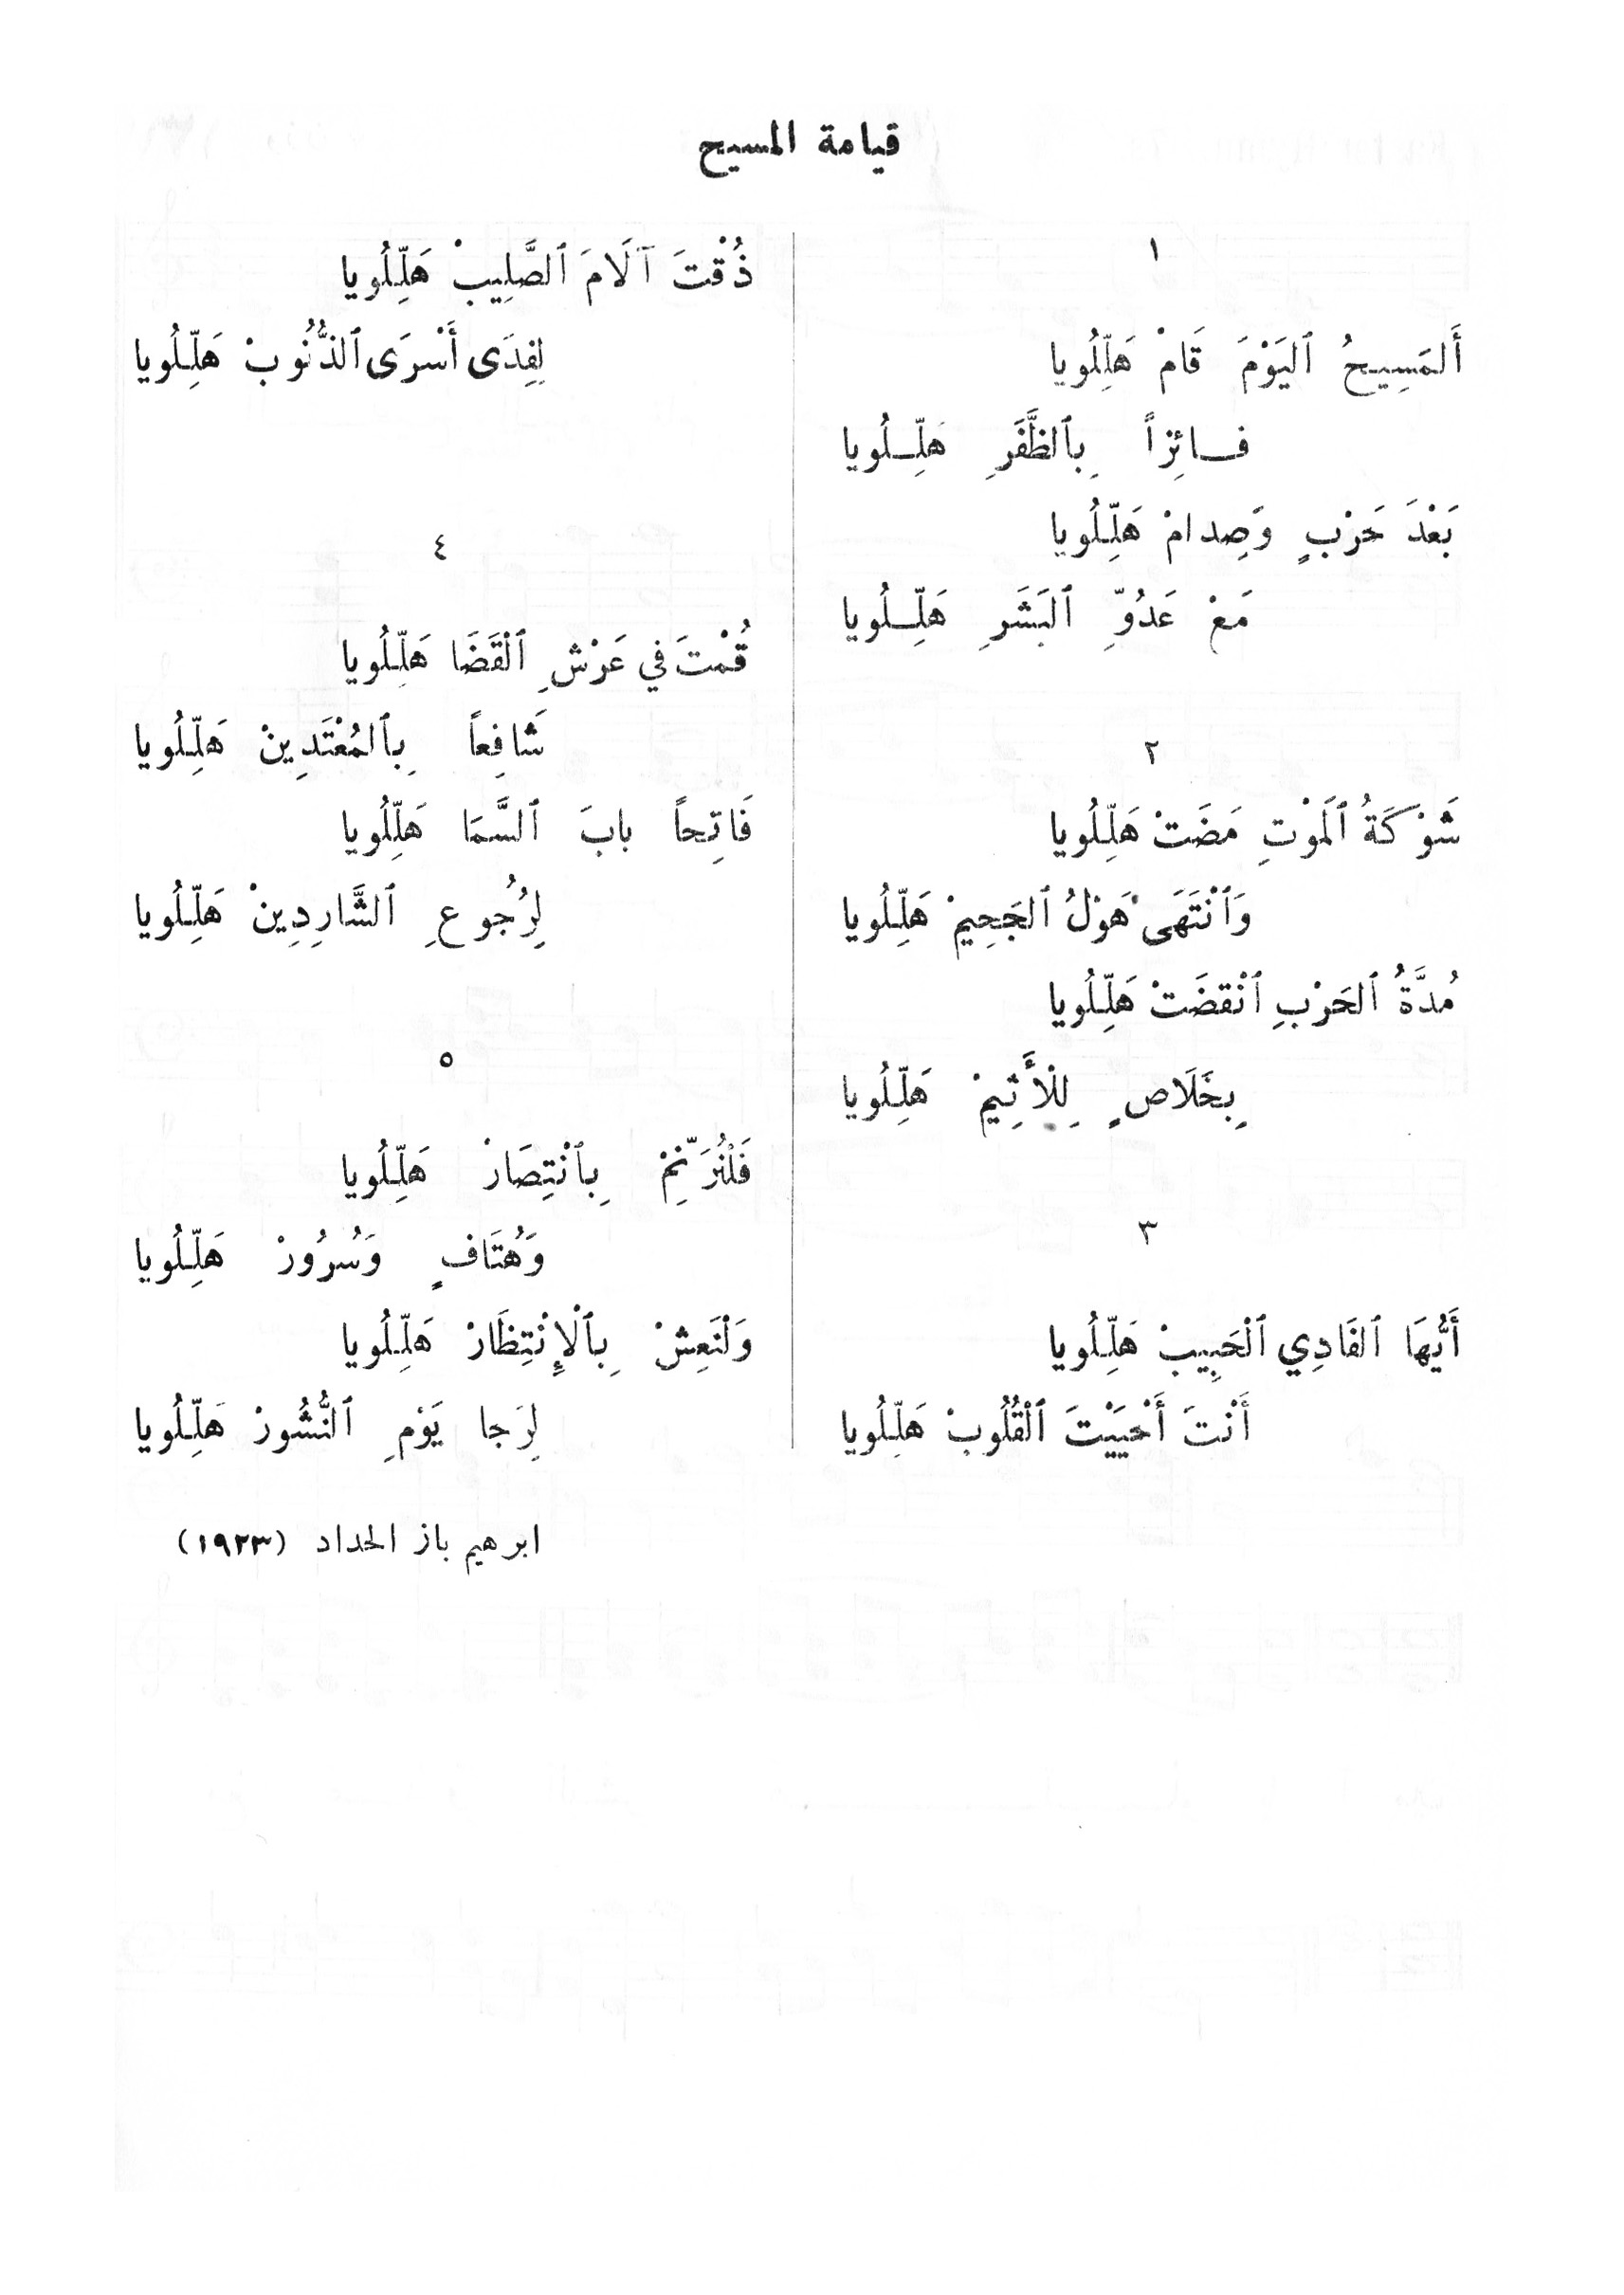 قيامة المسيح
١
أَلمَسِيحُ ٱليَوْمَ قَامْ هَلِّلُويا
فـــائِزاً بِٱلظَّفَرِ هَلِّـــلُويا
بَعْدَ حَرْبٍ وَصِدامْ هَلِّلُويا
مَعْ عَدُوِّ ٱلبَشَرِ هَلِّـــلُويا
٢
شَوْكَةُ ٱلَموْتِ مَضَتْ هَلِّلُويا
وَٱنْتَهَى هَوْلُ ٱلجَحِيمْ هَلِّلُويا
مُدَّةُ ٱلحَرْبِ ٱنْقضَتْ هَلِّلُويا
بِخَلَاصٍ لِلْأَثِيمْ هَلِّلُويا
٣
أَيُّهَا ٱلفَادِي ٱلْحَبِيبْ هَلِّلُويا
أَنْتَ أَحْيَيْتَ ٱلْقُلُوبْ هَلِّلُويا
ذُقْتَ آلَامَ ٱلصَّلِيبْ هَلِّلُويا
لِفِدَى أَسْرَى ٱلذُّنُوبْ هَلِّلُويا
٤
قُمْتَ في عَرْشِ ٱلْقَضَا هَلِّلُويا
شَافِعاً بِٱلمُعْتَدِينْ هَلِّلُويا
فَاتِحاً بابَ ٱلسَّمَا هَلِّلُويا
لِرُجُوعِ ٱلشَّارِدِينْ هَلِّلُويا
٥
فَلْنُرَنِّمْ بِٱنْتِصَارْ هَلِّلُويا
وَهُتَافٍ وَسُرُورْ هَلِّلُويا
وَلْنَعِشْ بِٱلْإِنْتِظَارْ هَلِّلُويا
لِرَجا يَوْمِ ٱلنُّشُورْ هَلِّلُويا
ابرهيم باز الحداد (١٩٢٣)